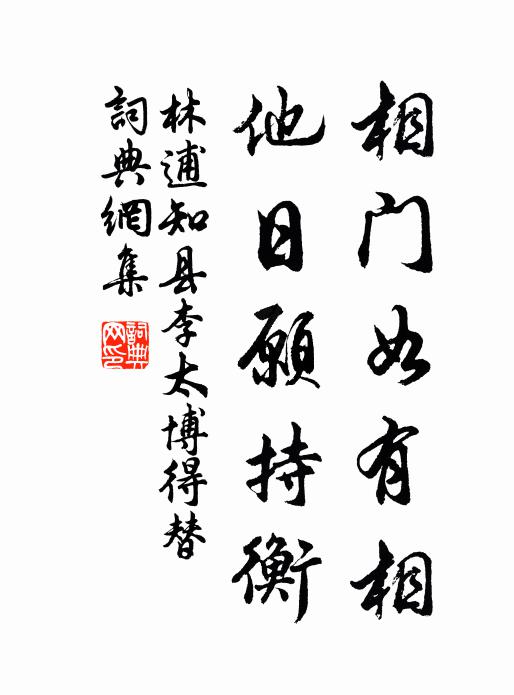 相门如有相
他日願持衡
林逋知县李太博得替
詞典網集
詞典网印